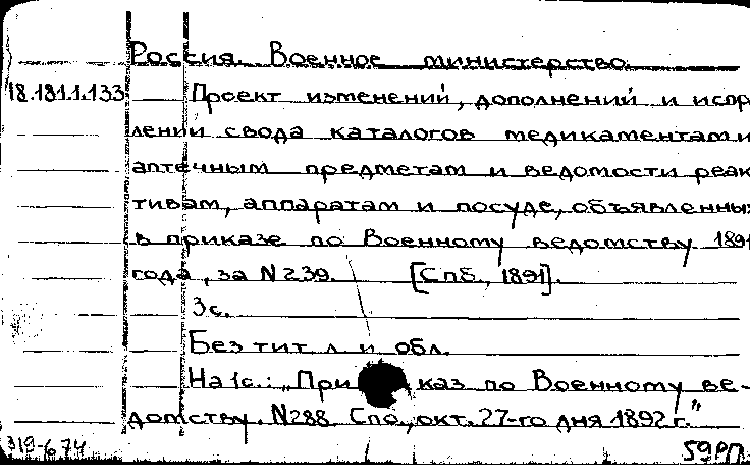 Россия. Военное министерство.
18.181.1.133 Проект изменений, дополнений и испр
лений свода каталогов медикаментам и
аптечным предметам и ведомости реак
тивам, аппаратам и посуде, объявленных
в приказе по Военному ведомству 1891
года, за N239. [Спб., 1891].
3с.
Без тит. л и обл.
На 1с.: „Приказ по Военному ве-
домству. N288 Спб., окт. 27-го дня 1892 г."
319-6 74 59РП